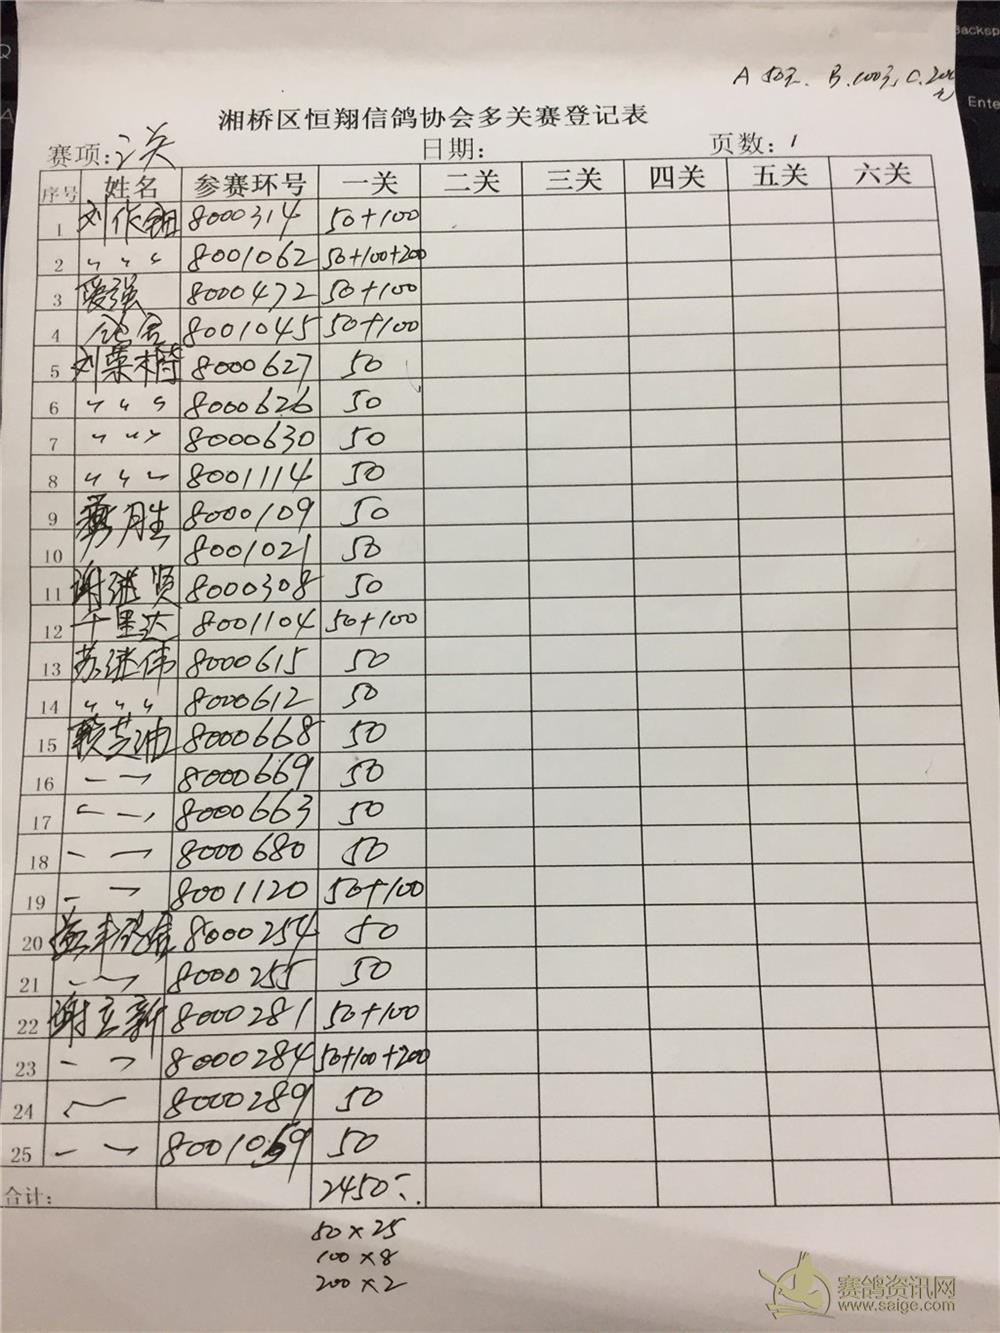 Backsp
Enter
A 50元、B.100元、C.200元
湘桥区恒翔信鸽协会多关赛登记表
赛项: 关 日期: 页数: 1
序号 姓名 参赛环号 一关 二关 三关 四关 五关 六关
1 刘作 8000314 50+100
2 〃 〃 〃 8001062 50+100+200
3 强 8000472 50+100
4 8001045 50+100
5 刘 8000627 50
6 〃 〃 〃 8000626 50
7 〃 〃 〃 8000630 50
8 〃 〃 〃 8001114 50
9 胜 8000109 50
10 8001021 50
11 谢继贤 8000308 50
12 千里达 8001104 50+100
13 苏继伟 8000615 50
14 〃 〃 〃 8000612 50
15 赖 8000668 50
16 〃 〃 8000669 50
17 〃 〃 8000663 50
18 〃 〃 8000680 50
19 〃 〃 8001120 50+100
20 益丰 8000254 50
21 〃 〃 8000255 50
22 谢立新 8000281 50+100
23 〃 〃 8000284 50+100+200
24 〃 8000289 50
25 〃 〃 8001059 50
合计: 2450
50×25
100×8
200×2
赛鸽资讯网
www.saige.com